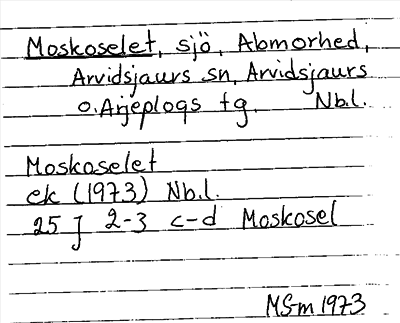 Moskoselet, sjö, Abmorhed,
Arvidsjaurs sn, Arvidsjaurs
o. Arjeplogs tg. Nb.l.
Moskoselet
ek (1973) Nb.l.
25 J 2-3 c-d Moskosel
MS-m 1973